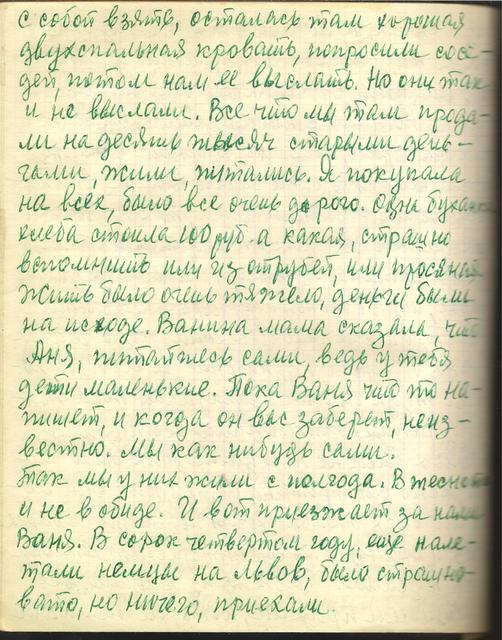 с собой взять, осталась там хорошая
двухспальная кровать, попросили сосе-
дей, потом нам ее выслать. Но они так
и не выслали. Все что мы там прода-
ли на десять тысяч старыми день-
гами, жили, питались. Я покупала
на всех, было все очень дорого. Одна буханка
хлеба стоила 100 руб. а какая, страшно
вспомнить или из отрубей, или просяная
жить было очень тяжело, деньги были
на исходе. Ванина мама сказала, что
Аня, питайтесь сами, ведь у тебя
дети маленькие. Пока Ваня что то на-
пишет, и когда он вас заберет, неиз-
вестно. Мы как нибудь сами.
Так мы у них жили с полгода. В тесноте
и не в обиде. И вот приезжает за нами
Ваня. В сорок четвертом году, еще нале-
тали немцы на Львов, было страшно-
вато, но ничего, приехали.